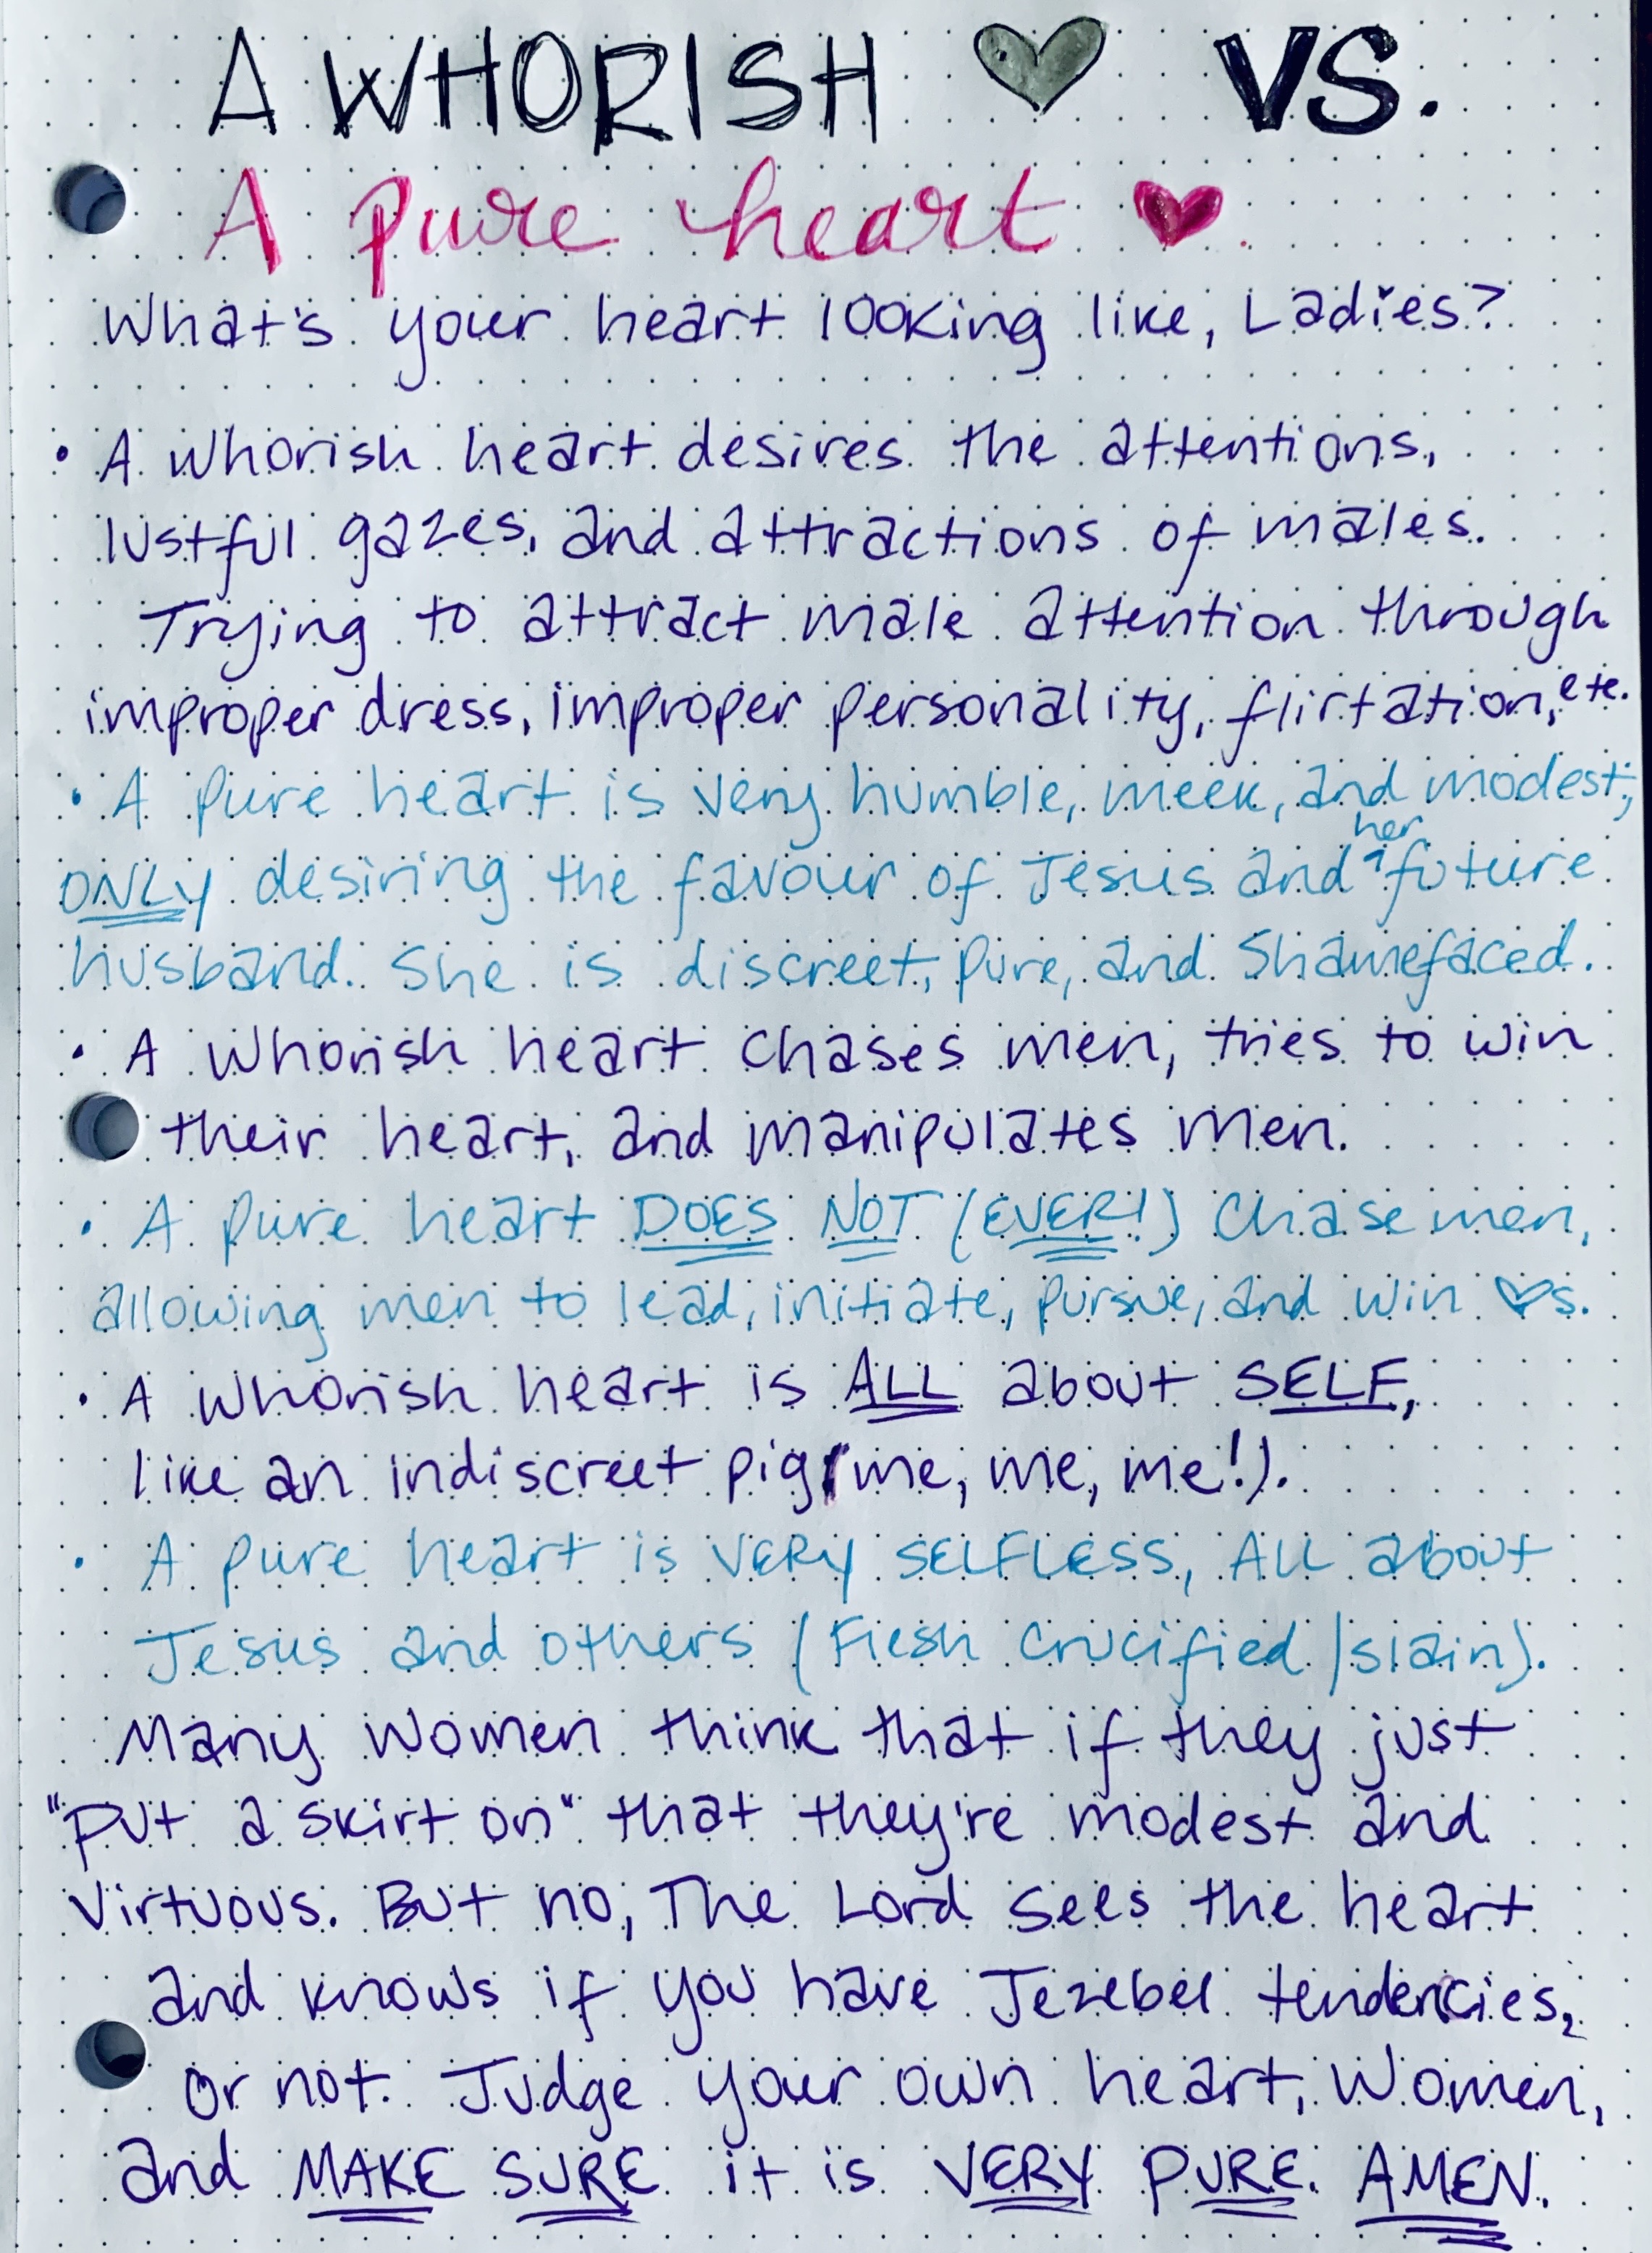 A WHORISH ♥ VS.
A pure heart ♥
What's your heart looking like, Ladies?
• A whorish heart desires the attentions,
lustful gazes, and attractions of males.
Trying to attract male attention through
improper dress, improper personality, flirtation, etc.
• A pure heart is very humble, meek, and modest;
ONLY desiring the favour of Jesus and her future
husband. She is discreet, pure, and shamefaced.
• A whorish heart chases men, tries to win
their heart, and manipulates men.
• A pure heart DOES NOT (EVER!) chase men,
allowing men to lead, initiate, pursue, and win ♡s.
• A whorish heart is ALL about SELF,
like an indiscreet pig (me, me, me!).
• A pure heart is VERY SELFLESS, All about
Jesus and others (Flesh crucified/slain).
Many women think that if they just
"put a skirt on" that they're modest and
virtuous. But no, The Lord sees the heart
and knows if you have Jezebel tendencies,
or not. Judge your own heart, Women,
and MAKE SURE it is VERY PURE. AMEN.